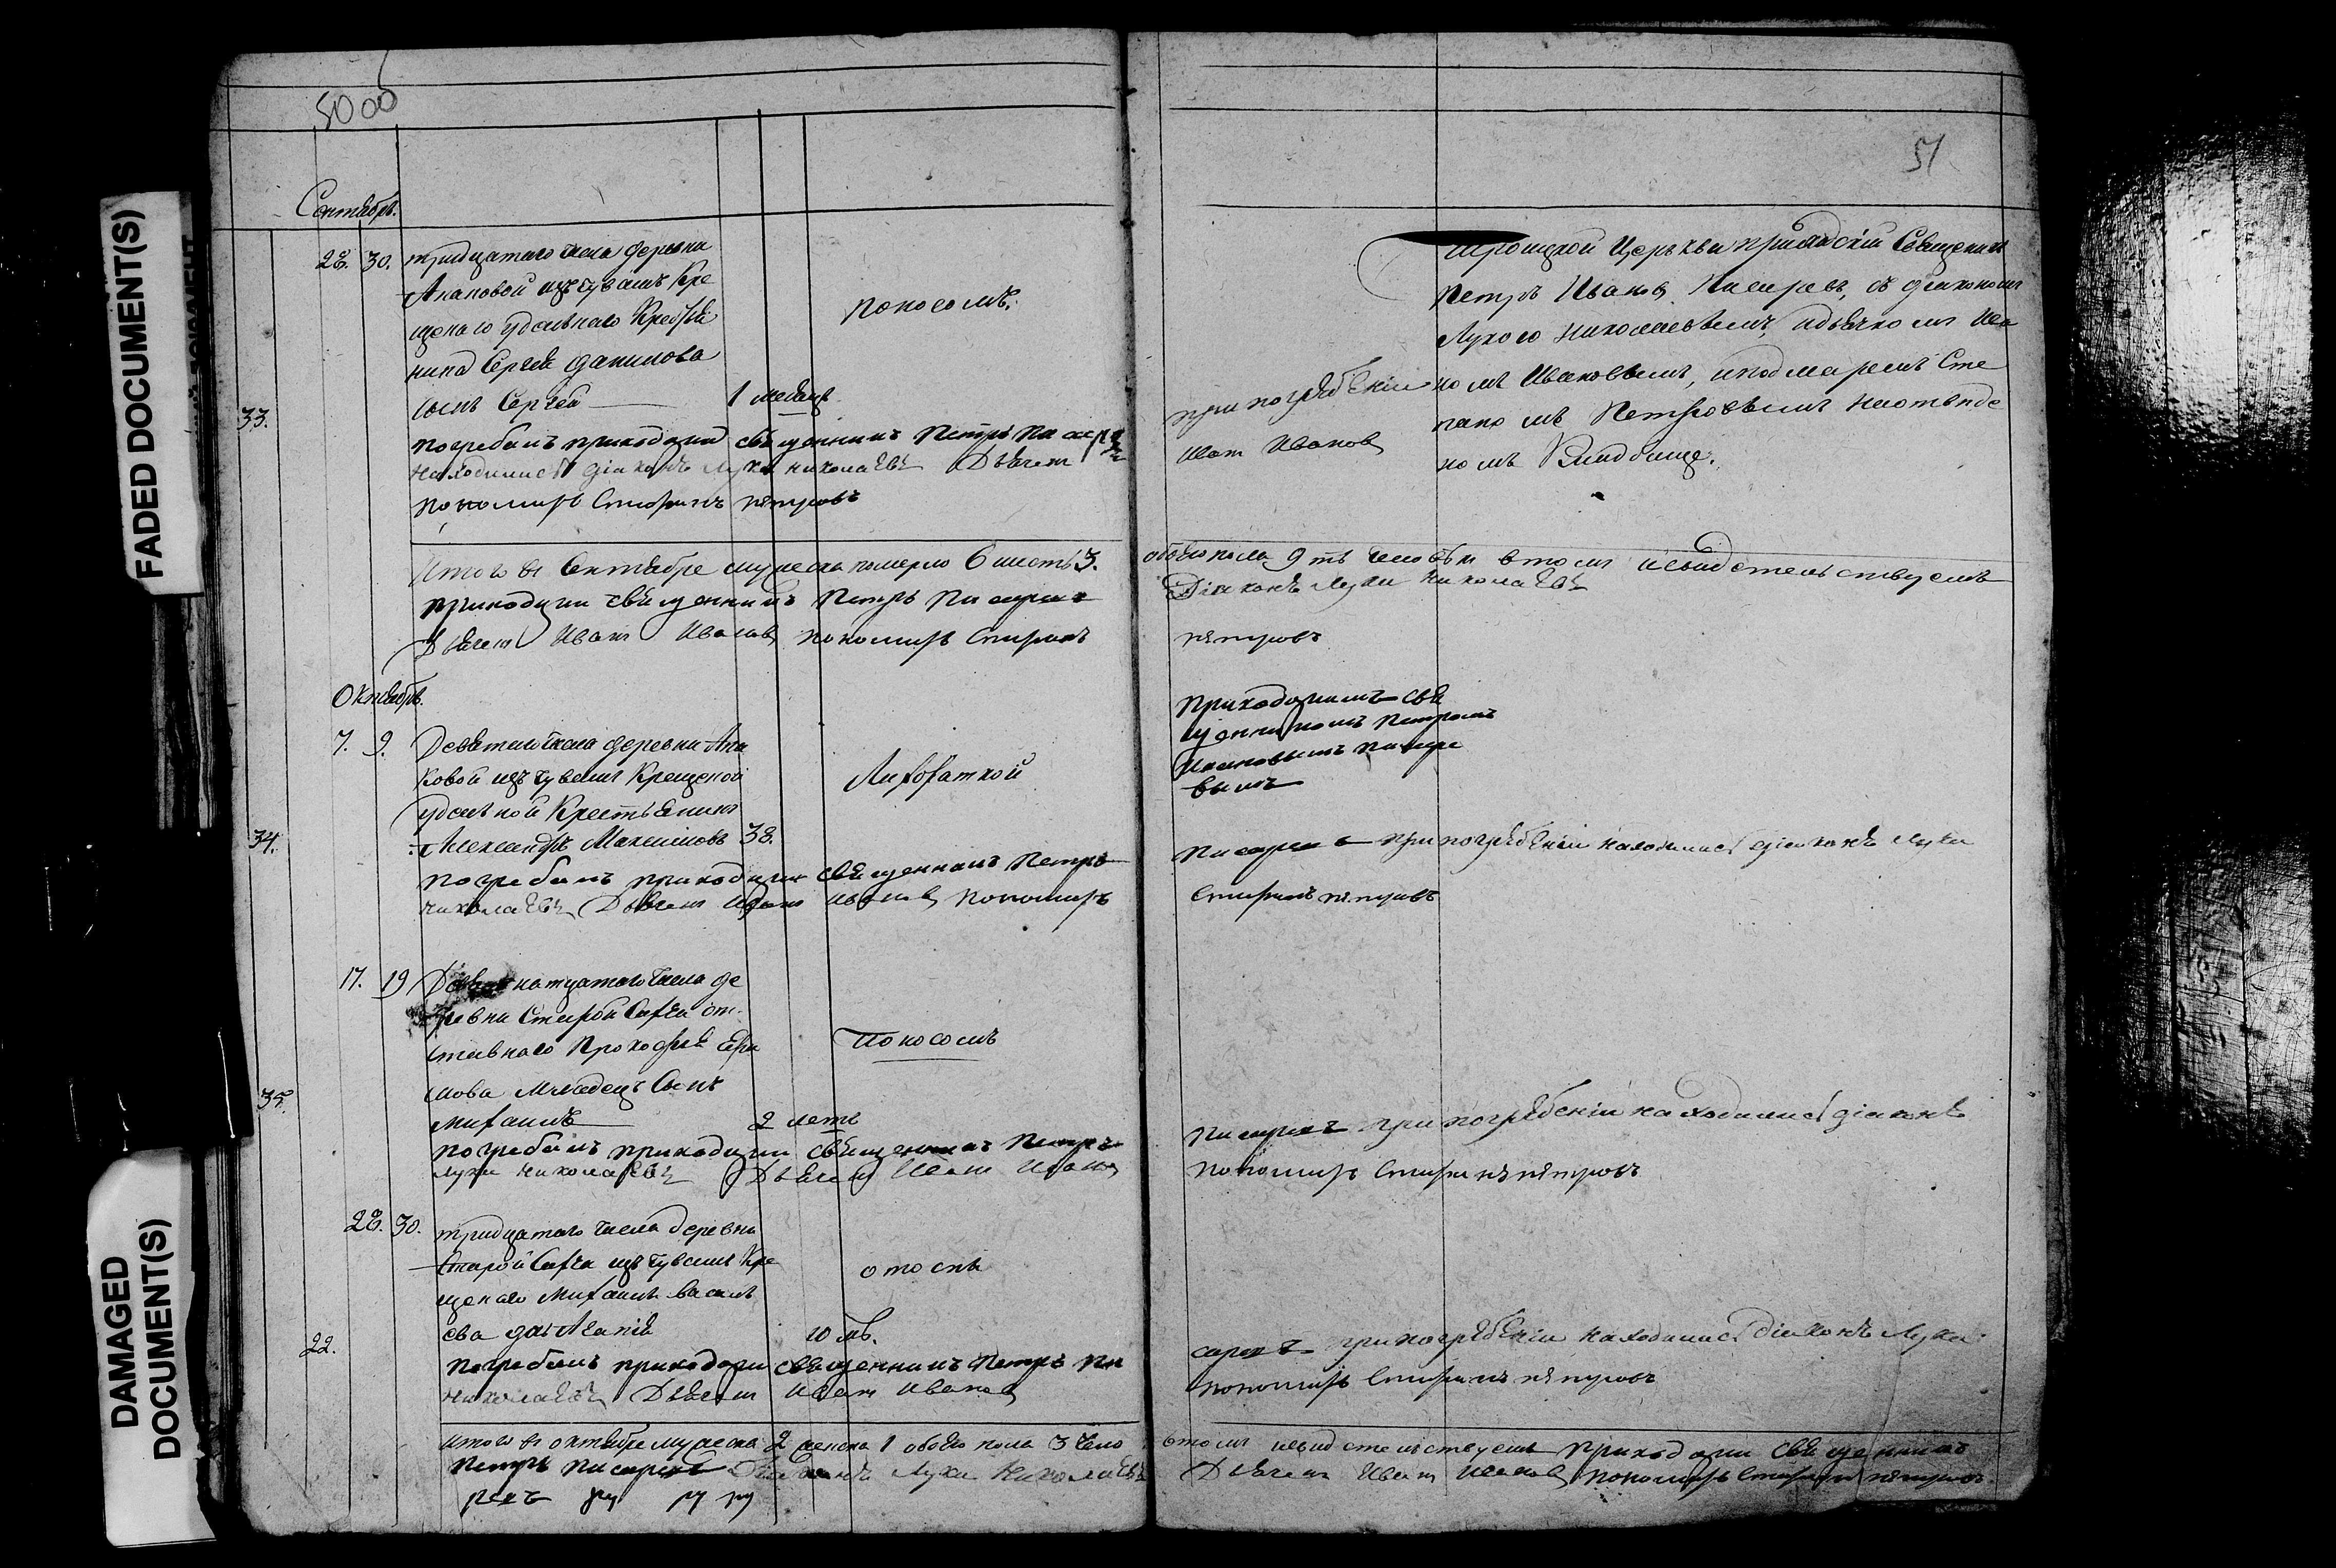 FADED DOCUMENT(S)
DAMAGED
DOCUMENT(S)
50 об
51
Сентябрь.
28. 30. тридцатаго числа деревни
Апаковой изъ чувашъ Кре
щенаго удельнаго Крестья
нина Сергея Данилова
сынъ Сергей 1 месяцъ
поносомъ.
33.
погребалъ приходский священникъ Петръ Писарев
находились діаконъ Лука Николаевъ Дьячекъ
пономарь Стефанъ петровъ
Троицкой Церькви приходский Священникъ
Петръ Иванов Писаревъ, съ диакономъ
Лукою Николаевымъ, и дьячкомъ Ива
номъ Ивановымъ, и пономаремъ Сте
паномъ Петровымъ на отведе
номъ Кладбище.
при погребении
Иван Иванов
Итого въ Сентябре мужеска померло 6 шесть 3.
обоего пола 9 ть человекъ в томъ и свидетельствуемъ
приходский священникъ Петръ Писаревъ
Діаконъ Лука Николаевъ
Дьячекъ Иванъ Иванов пономарь Стефанъ
петровъ
Октябрь.
7. 9. Девятаго числа деревни Апа
ковой изъ чувашъ Крещеной
удельной Крестьянинъ
Александръ Максимовъ 38.
Лихораткой
34.
приходскимъ свя
щенникомъ Петромъ
Ивановымъ Писаре
вымъ
погребалъ приходский священникъ Петръ
Писаревъ при погребении находились діаконъ Лука
Николаевъ Дьячекъ Иванъ Иванов Пономарь
Стефанъ петровъ
17. 19 числа де
ревни Старой от
ставнаго Прокофья
мова Младенецъ Сынъ
Михаилъ 2 летъ
Поносомъ
35.
погребалъ приходский священникъ Петръ
Писаревъ при погребении находились діаконъ
Лука Николаевъ Дьячекъ Иванъ Иванов
пономарь Стефанъ петровъ
28. 30. тридцатаго числа деревни
Старой изъ чувашъ Кре
щенаго Михаила Василь
ева дочь 10 мѣ.
от оспы
22.
погребалъ приходский священникъ Петръ Пи
саревъ при погребении находились діаконъ Лука
Николаевъ Дьячекъ Иванъ Иванов
пономарь Стефанъ петровъ
Итого въ октябре мужеска 2 женска 1 обоего пола 3 чело
в томъ и свидетельствуемъ приходский священникъ
Петръ Писаревъ Діаконъ Лука Николаевъ
Дьячекъ Иванъ Иванов пономарь Стефанъ петровъ